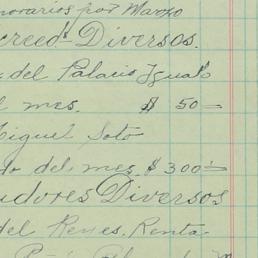 honorarios por Marzo
acreeds Diversos.
del Palacio Iguals
el mes. $ 50=
Miguel Soto
do del mes. $ 300=
udores Diversos
del Renes. Renta